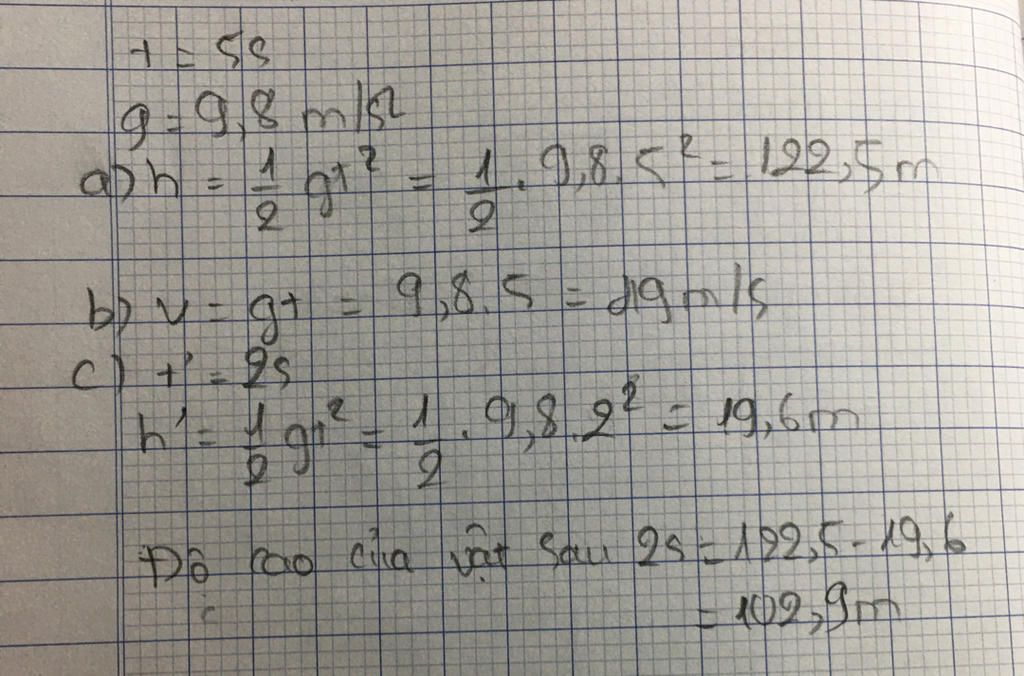 t = 5s
g = 9,8 m/s2
a) h = 1/2 gt² = 1/2 . 9,8 . 5² = 122,5m
b) v = gt = 9,8 . 5 = 49 m/s
c) t' = 2s
h' = 1/2 gt'² = 1/2 . 9,8 . 2² = 19,6m
Độ cao của vật sau 2s = 122,5 - 19,6
= 102,9m